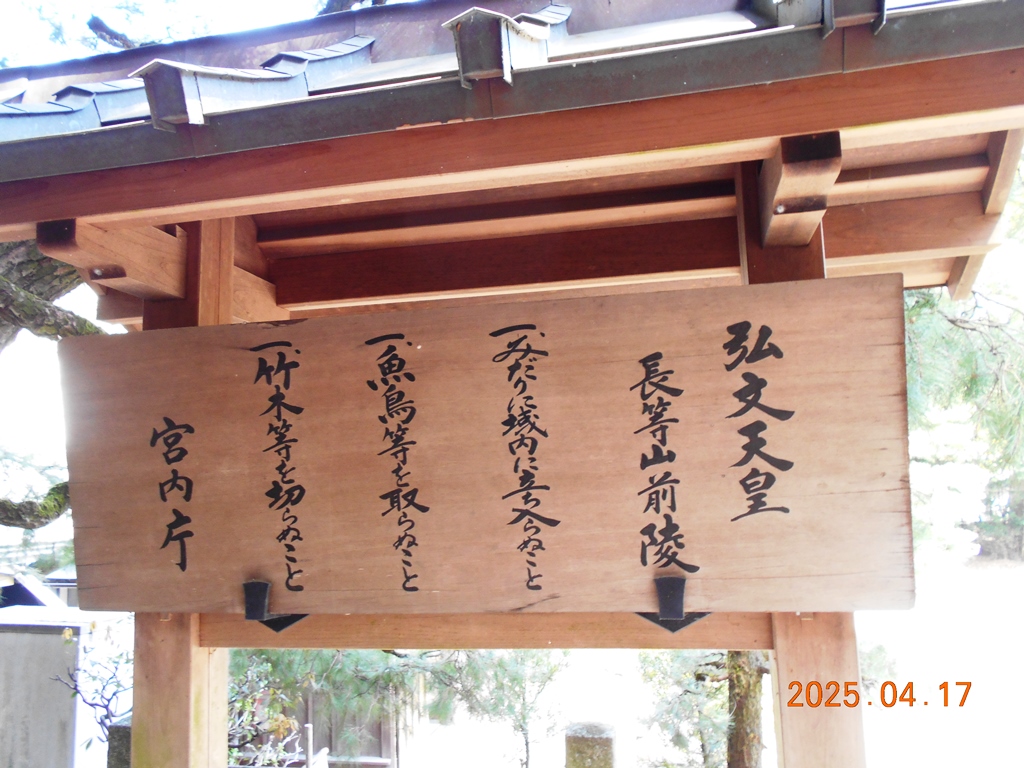 弘文天皇
長等山前陵
一、みだりに域内に立ち入らぬこと
一、魚鳥等を取らぬこと
一、竹木等を切らぬこと
宮内庁
2025.04.17